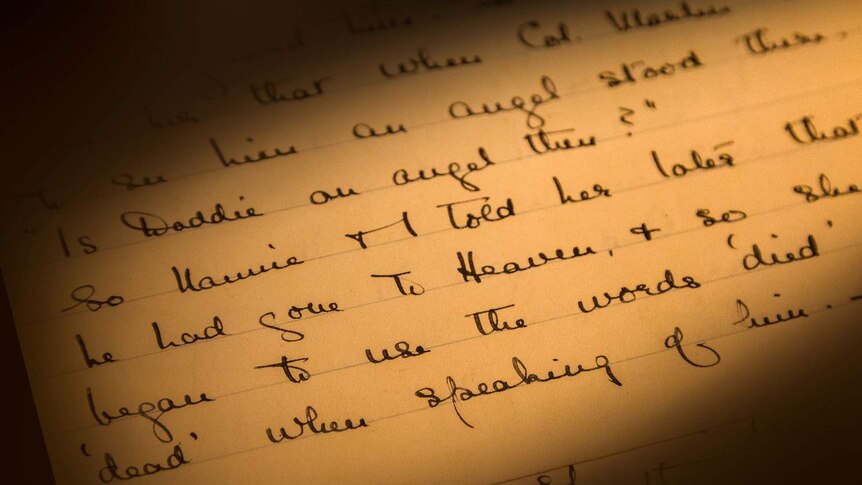 him.
her that when Col. Martin
to see him an angel stood there.
"Is Daddie an angel then?"
So Nannie & I told her later that
he had gone to Heaven, & so she
began to use the words 'died'
'dead' when speaking of him. -